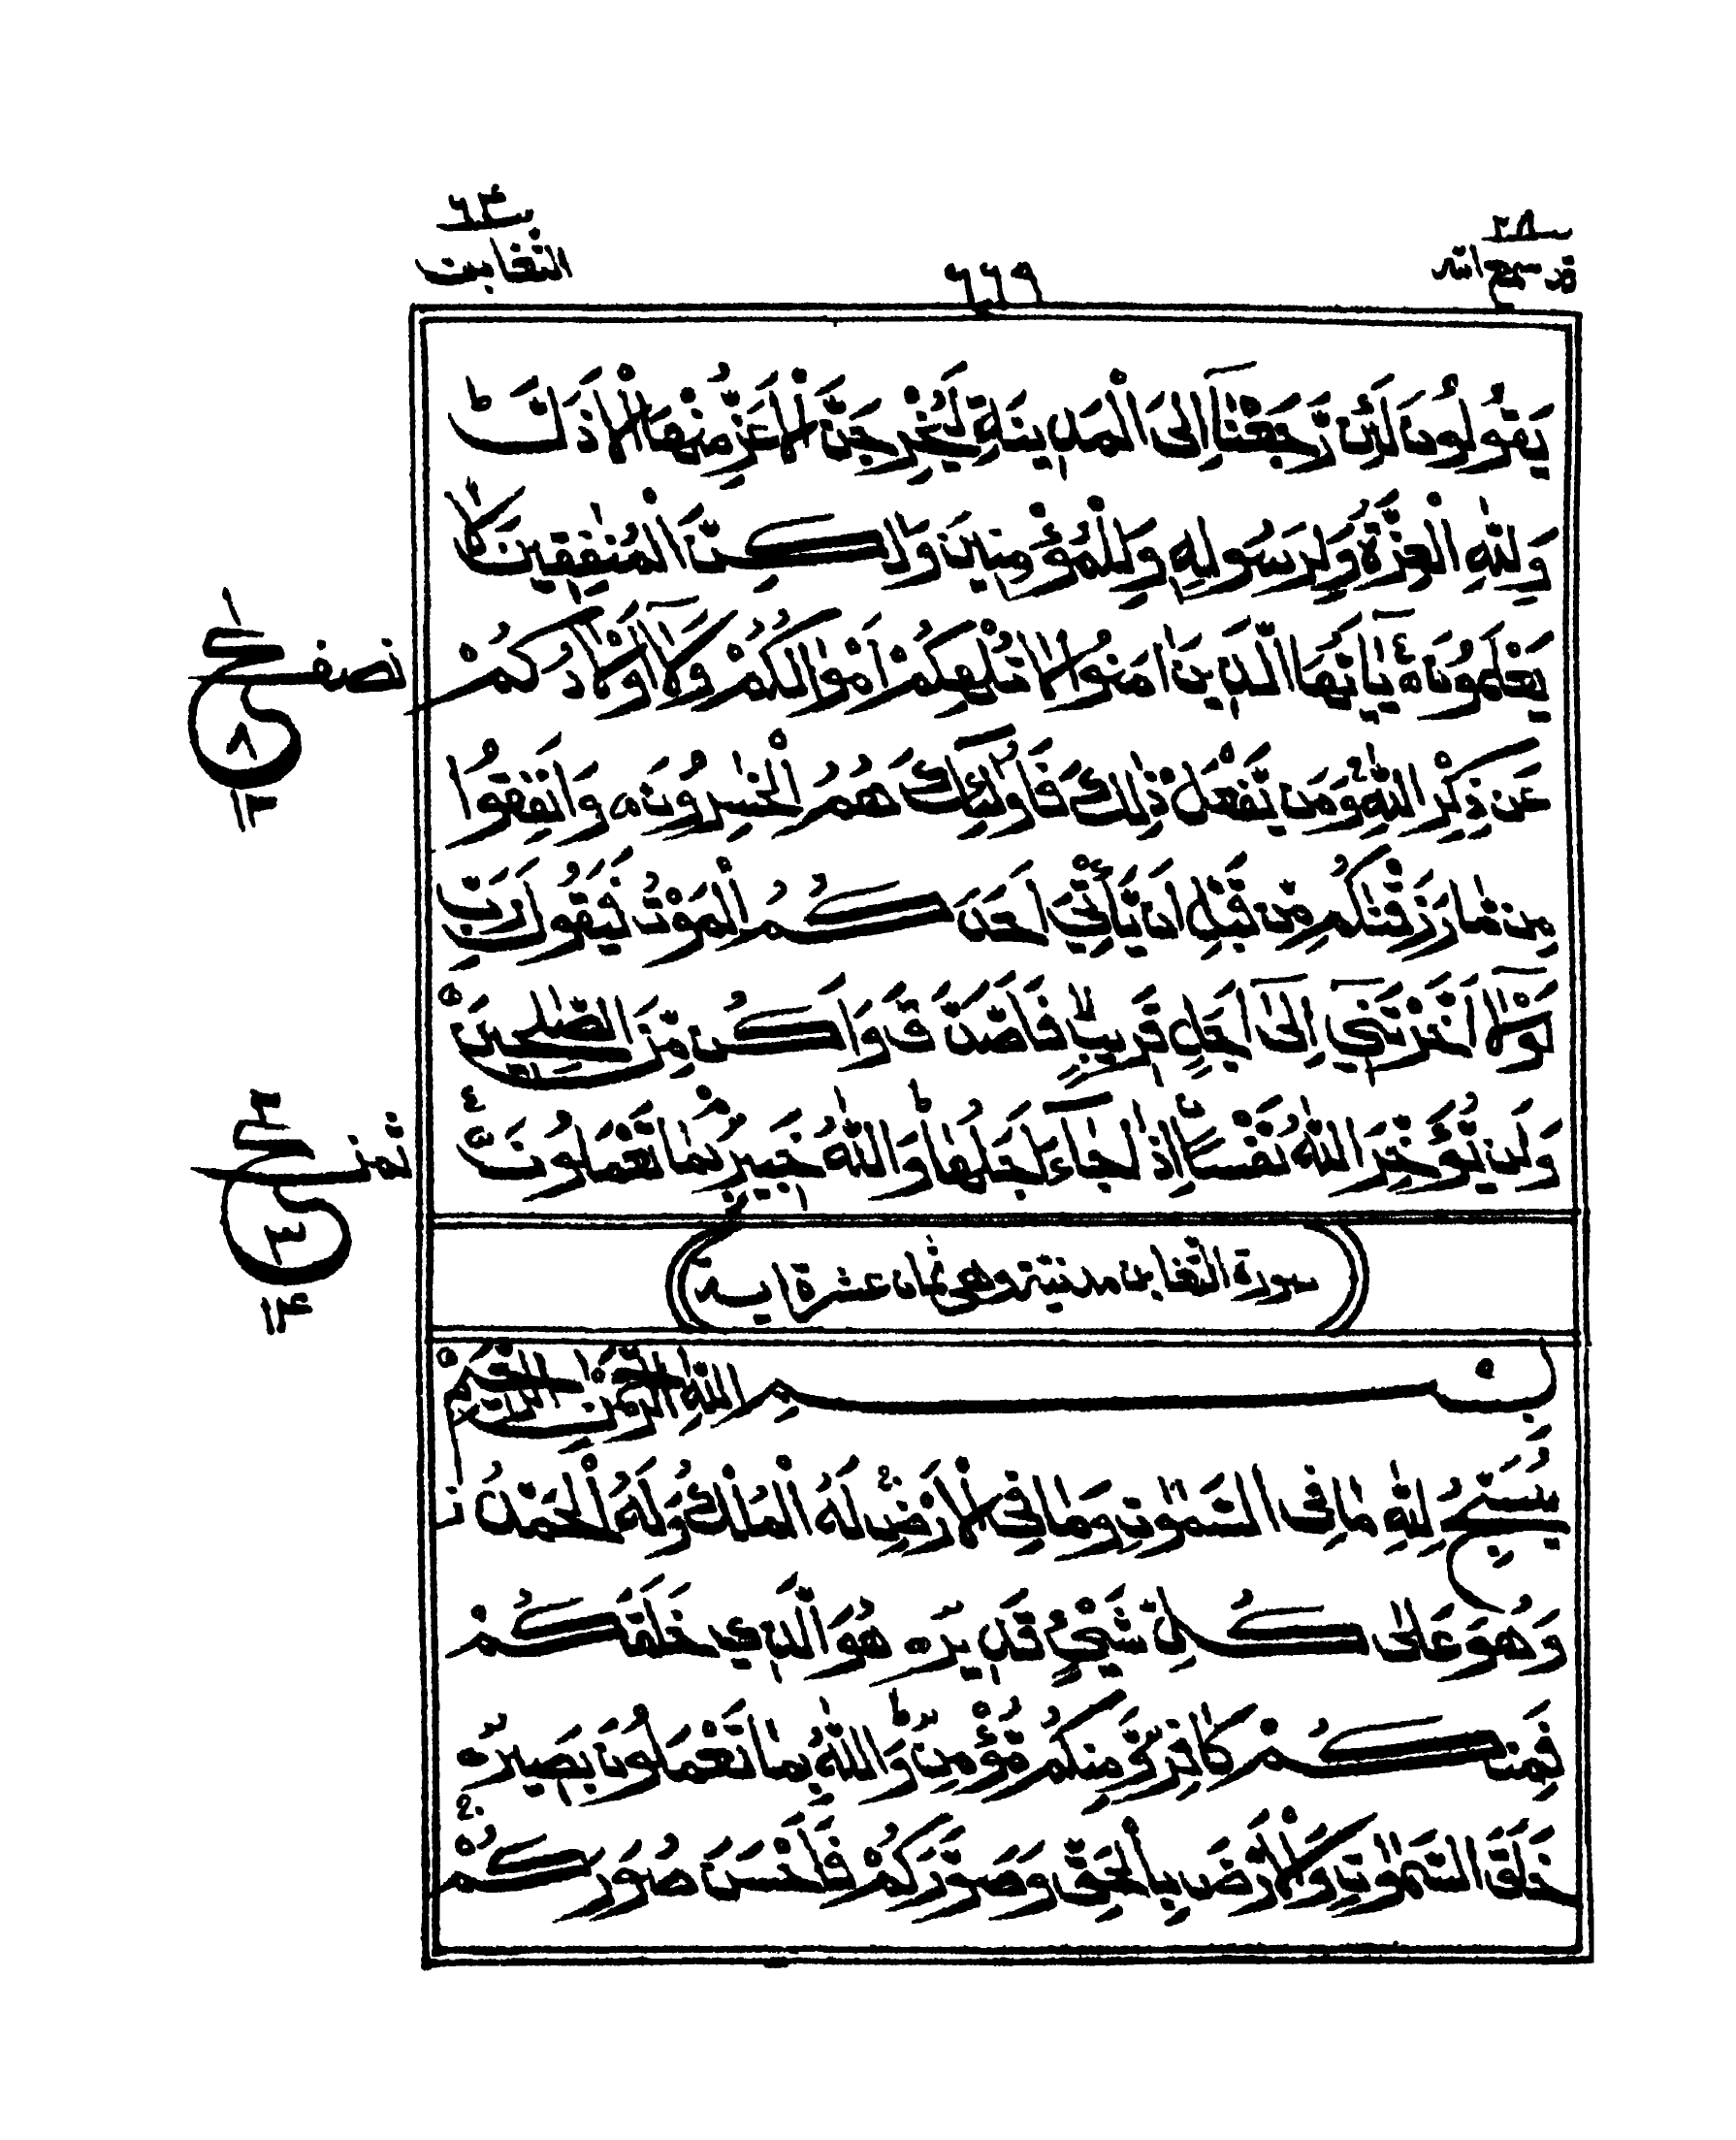 قد سمع الله ٢٨
٦٦٩
التغابن ٦٤
يَقُولُونَ لَئِنْ رَّجَعْنَآ اِلَى الْمَدِينَةِ لَيُخْرِجَنَّ الْاَعَزُّ مِنْهَا الْاَذَلَّ ؕ
وَلِلّٰهِ الْعِزَّةُ وَلِرَسُولِهٖ وَلِلْمُؤْمِنِينَ وَلٰكِنَّ الْمُنٰفِقِينَ لَا
يَعْلَمُونَ ۝ يٰٓاَيُّهَا الَّذِينَ اٰمَنُوا لَا تُلْهِكُمْ اَمْوَالُكُمْ وَلَآ اَوْلَادُكُمْ
عَنْ ذِكْرِ اللّٰهِ ۚ وَمَنْ يَّفْعَلْ ذٰلِكَ فَاُولٰٓئِكَ هُمُ الْخٰسِرُونَ ۝ وَاَنْفِقُوا
مِنْ مَّا رَزَقْنٰكُمْ مِّنْ قَبْلِ اَنْ يَّأْتِيَ اَحَدَكُمُ الْمَوْتُ فَيَقُولَ رَبِّ
لَوْلَآ اَخَّرْتَنِيٓ اِلٰٓى اَجَلٍ قَرِيبٍ ۙ فَاَصَّدَّقَ وَاَكُنْ مِّنَ الصّٰلِحِينَ ۝
وَلَنْ يُّؤَخِّرَ اللّٰهُ نَفْسًا اِذَا جَآءَ اَجَلُهَا ؕ وَاللّٰهُ خَبِيرٌۢ بِمَا تَعْمَلُونَ ۝
نصف
ع
٨
١٣
ثمن
ع
٣
١٤
سورة التغابن مدنية وهى ثمان عشرة اية
بِسْمِ اللّٰهِ الرَّحْمٰنِ الرَّحِيمِ
يُسَبِّحُ لِلّٰهِ مَا فِى السَّمٰوٰتِ وَمَا فِى الْاَرْضِ ۚ لَهُ الْمُلْكُ وَلَهُ الْحَمْدُ ز
وَهُوَ عَلٰى كُلِّ شَيْءٍ قَدِيرٌ ۝ هُوَ الَّذِي خَلَقَكُمْ
فَمِنْكُمْ كَافِرٌ وَّمِنْكُمْ مُّؤْمِنٌ ؕ وَاللّٰهُ بِمَا تَعْمَلُونَ بَصِيرٌ ۝
خَلَقَ السَّمٰوٰتِ وَالْاَرْضَ بِالْحَقِّ وَصَوَّرَكُمْ فَاَحْسَنَ صُوَرَكُمْ ۚ